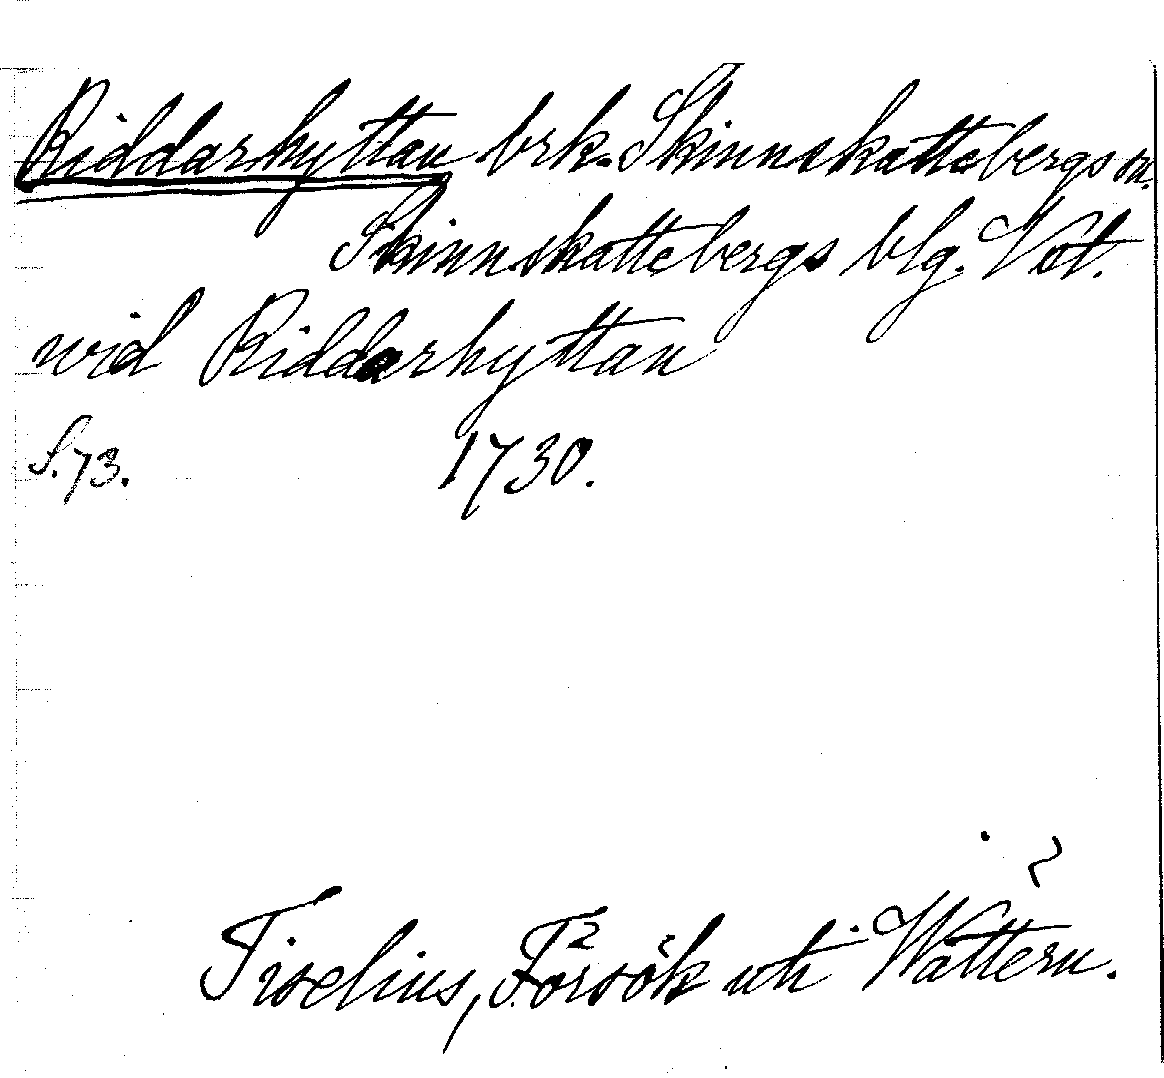 Riddarhyttan brk. Skinnskattebergs sn.
Skinnskattebergs blg. Vstl.
wid Riddarhyttan
S. 73. 1730.
Tiselius, Försök uti Wättern.